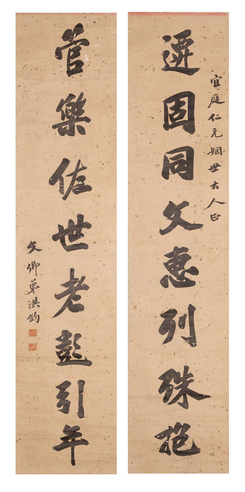 宜庭仁兄姻世大人正
迁固同文惠列殊抱
管樂佐世老彭引年
文卿弟洪鈞